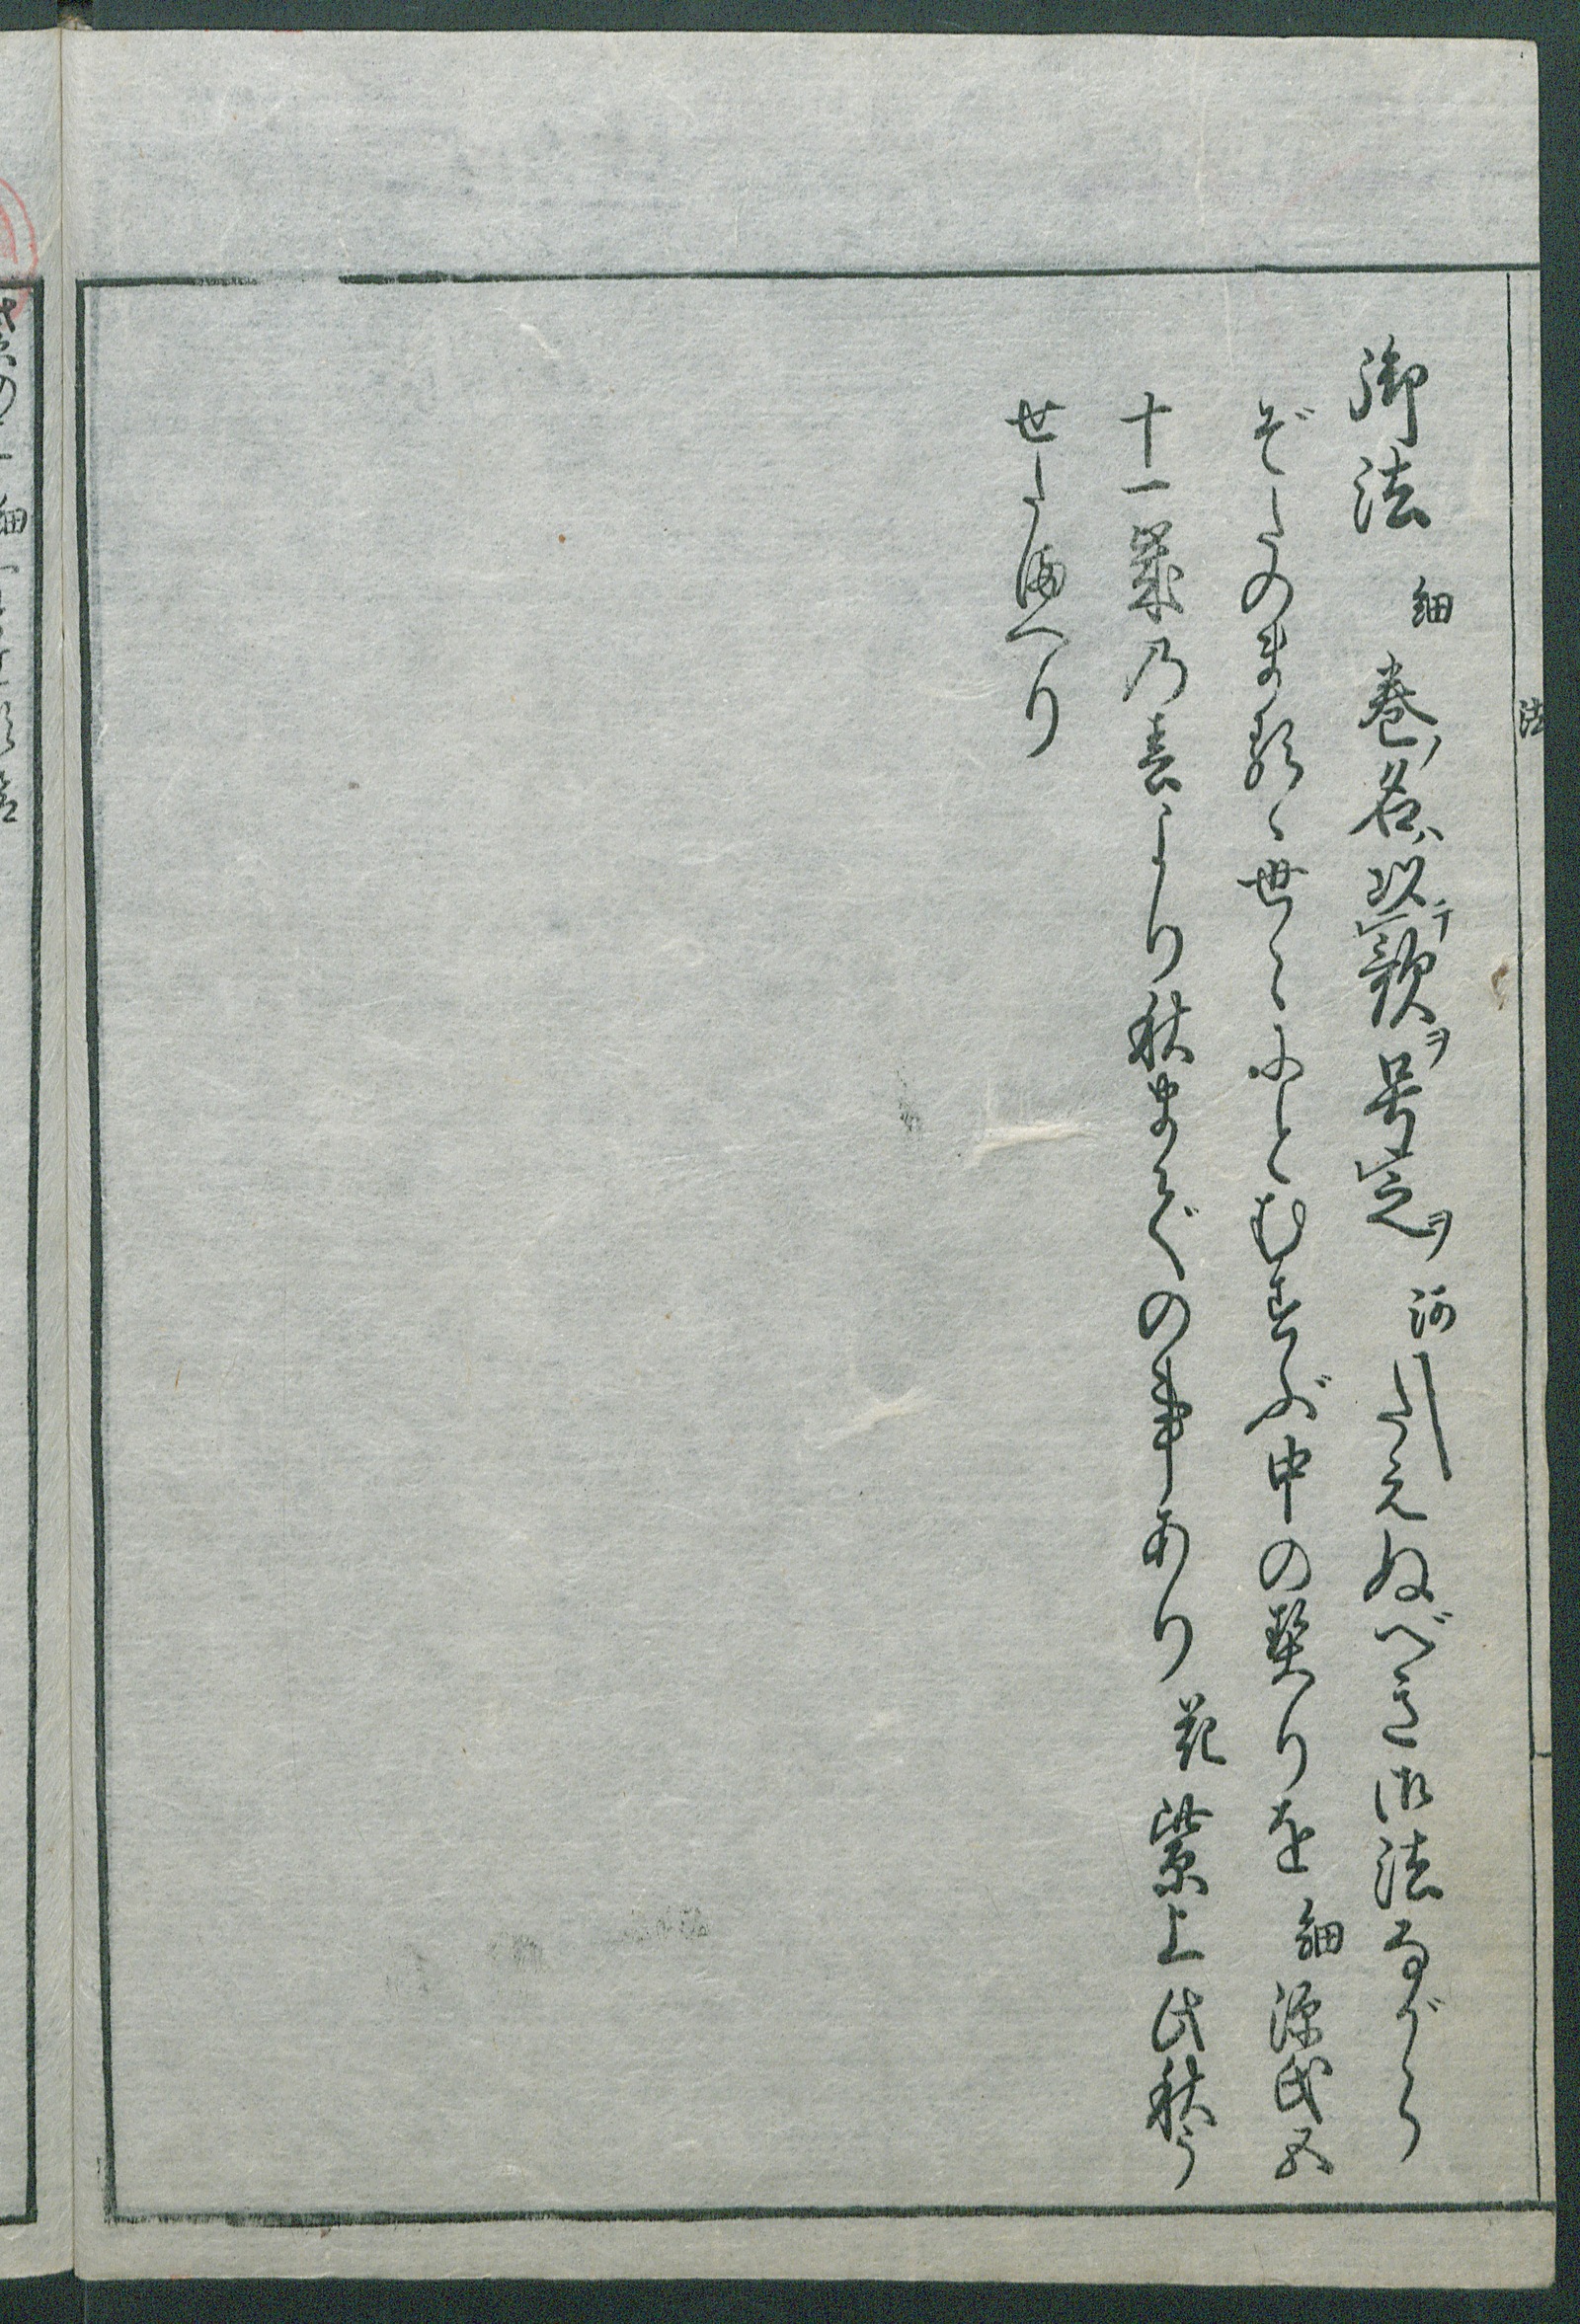 御法 細 巻ノ名ハ以テ歌ヲ号ス之ヲ 河 たえぬべき御法ながら
ぞたのまるゝ世ゝにとむすぶ中の契りを 細 源氏五
十一歳乃春より秋までの事あり 花 紫上此秋う
せたまへり
法